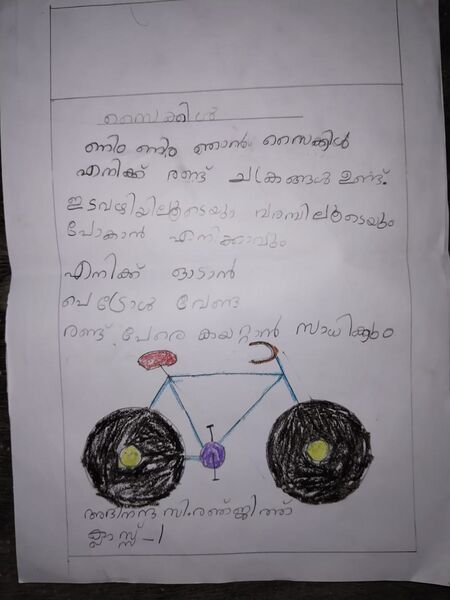 സൈക്കിൾ
ണിം ണിം ഞാൻ സൈക്കിൾ
എനിക്ക് രണ്ട് ചക്രങ്ങൾ ഉണ്ട്.
ഇടവഴിയിലൂടെയും വരമ്പിലൂടെയും
പോകാൻ എനിക്കാവും
എനിക്ക് ഓടാൻ
പെട്രോൾ വേണ്ട
രണ്ട് പേരെ കയറ്റാൻ സാധിക്കും
സി.രഞ്ജിത്ത്
ക്ലാസ്സ് -1